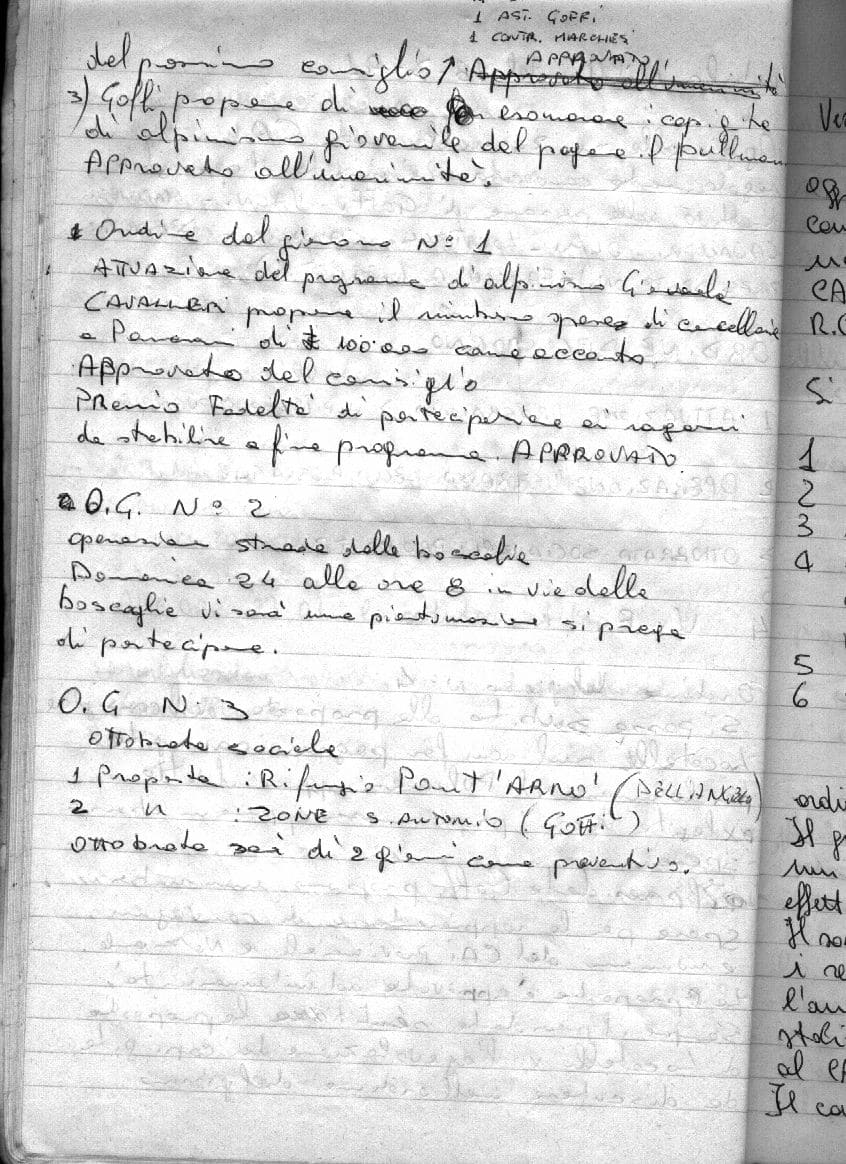 1 AST. GOFFI
1 CONTR. MARCHESI
APPROVATO
del prossimo consiglio ↑ Approvato all'unanimità
3) Goffi propone di esonerare i capi gite
di alpinismo giovanile del pagare il pullman
APPROVATO all'unanimità.
Ordine del giorno N° 1
ATTUAZIONE del programma d'alpinismo Giovanile
CAVALLERI propone il rimborso spese di cancelleria
a di £ 100.000 come acconto
APProvato del consiglio
PREMIO Fedeltà di partecipazione ai ragazzi
da stabilire a fine programma. APPROVATO.
O.G. N° 2
operazione strada delle boscaglie
Domenica 24 alle ore 8 in via delle
boscaglie vi sarà una piantumazione si prega
di partecipare.
O.G N. 3
Ottobrata sociale
1 Proposta : Rifugio PONT d'ARNO' (DELL'ANGELO)
2 " : ZONE S. ANTONIO (GOFFI)
Ottobrata sarà di 2 giorni come preventivo.
Ve
ogg
con
CA
R.C
Si
1
2
3
4
5
6
ordi
Il
effett
Il
i re
l'au
al
Il co